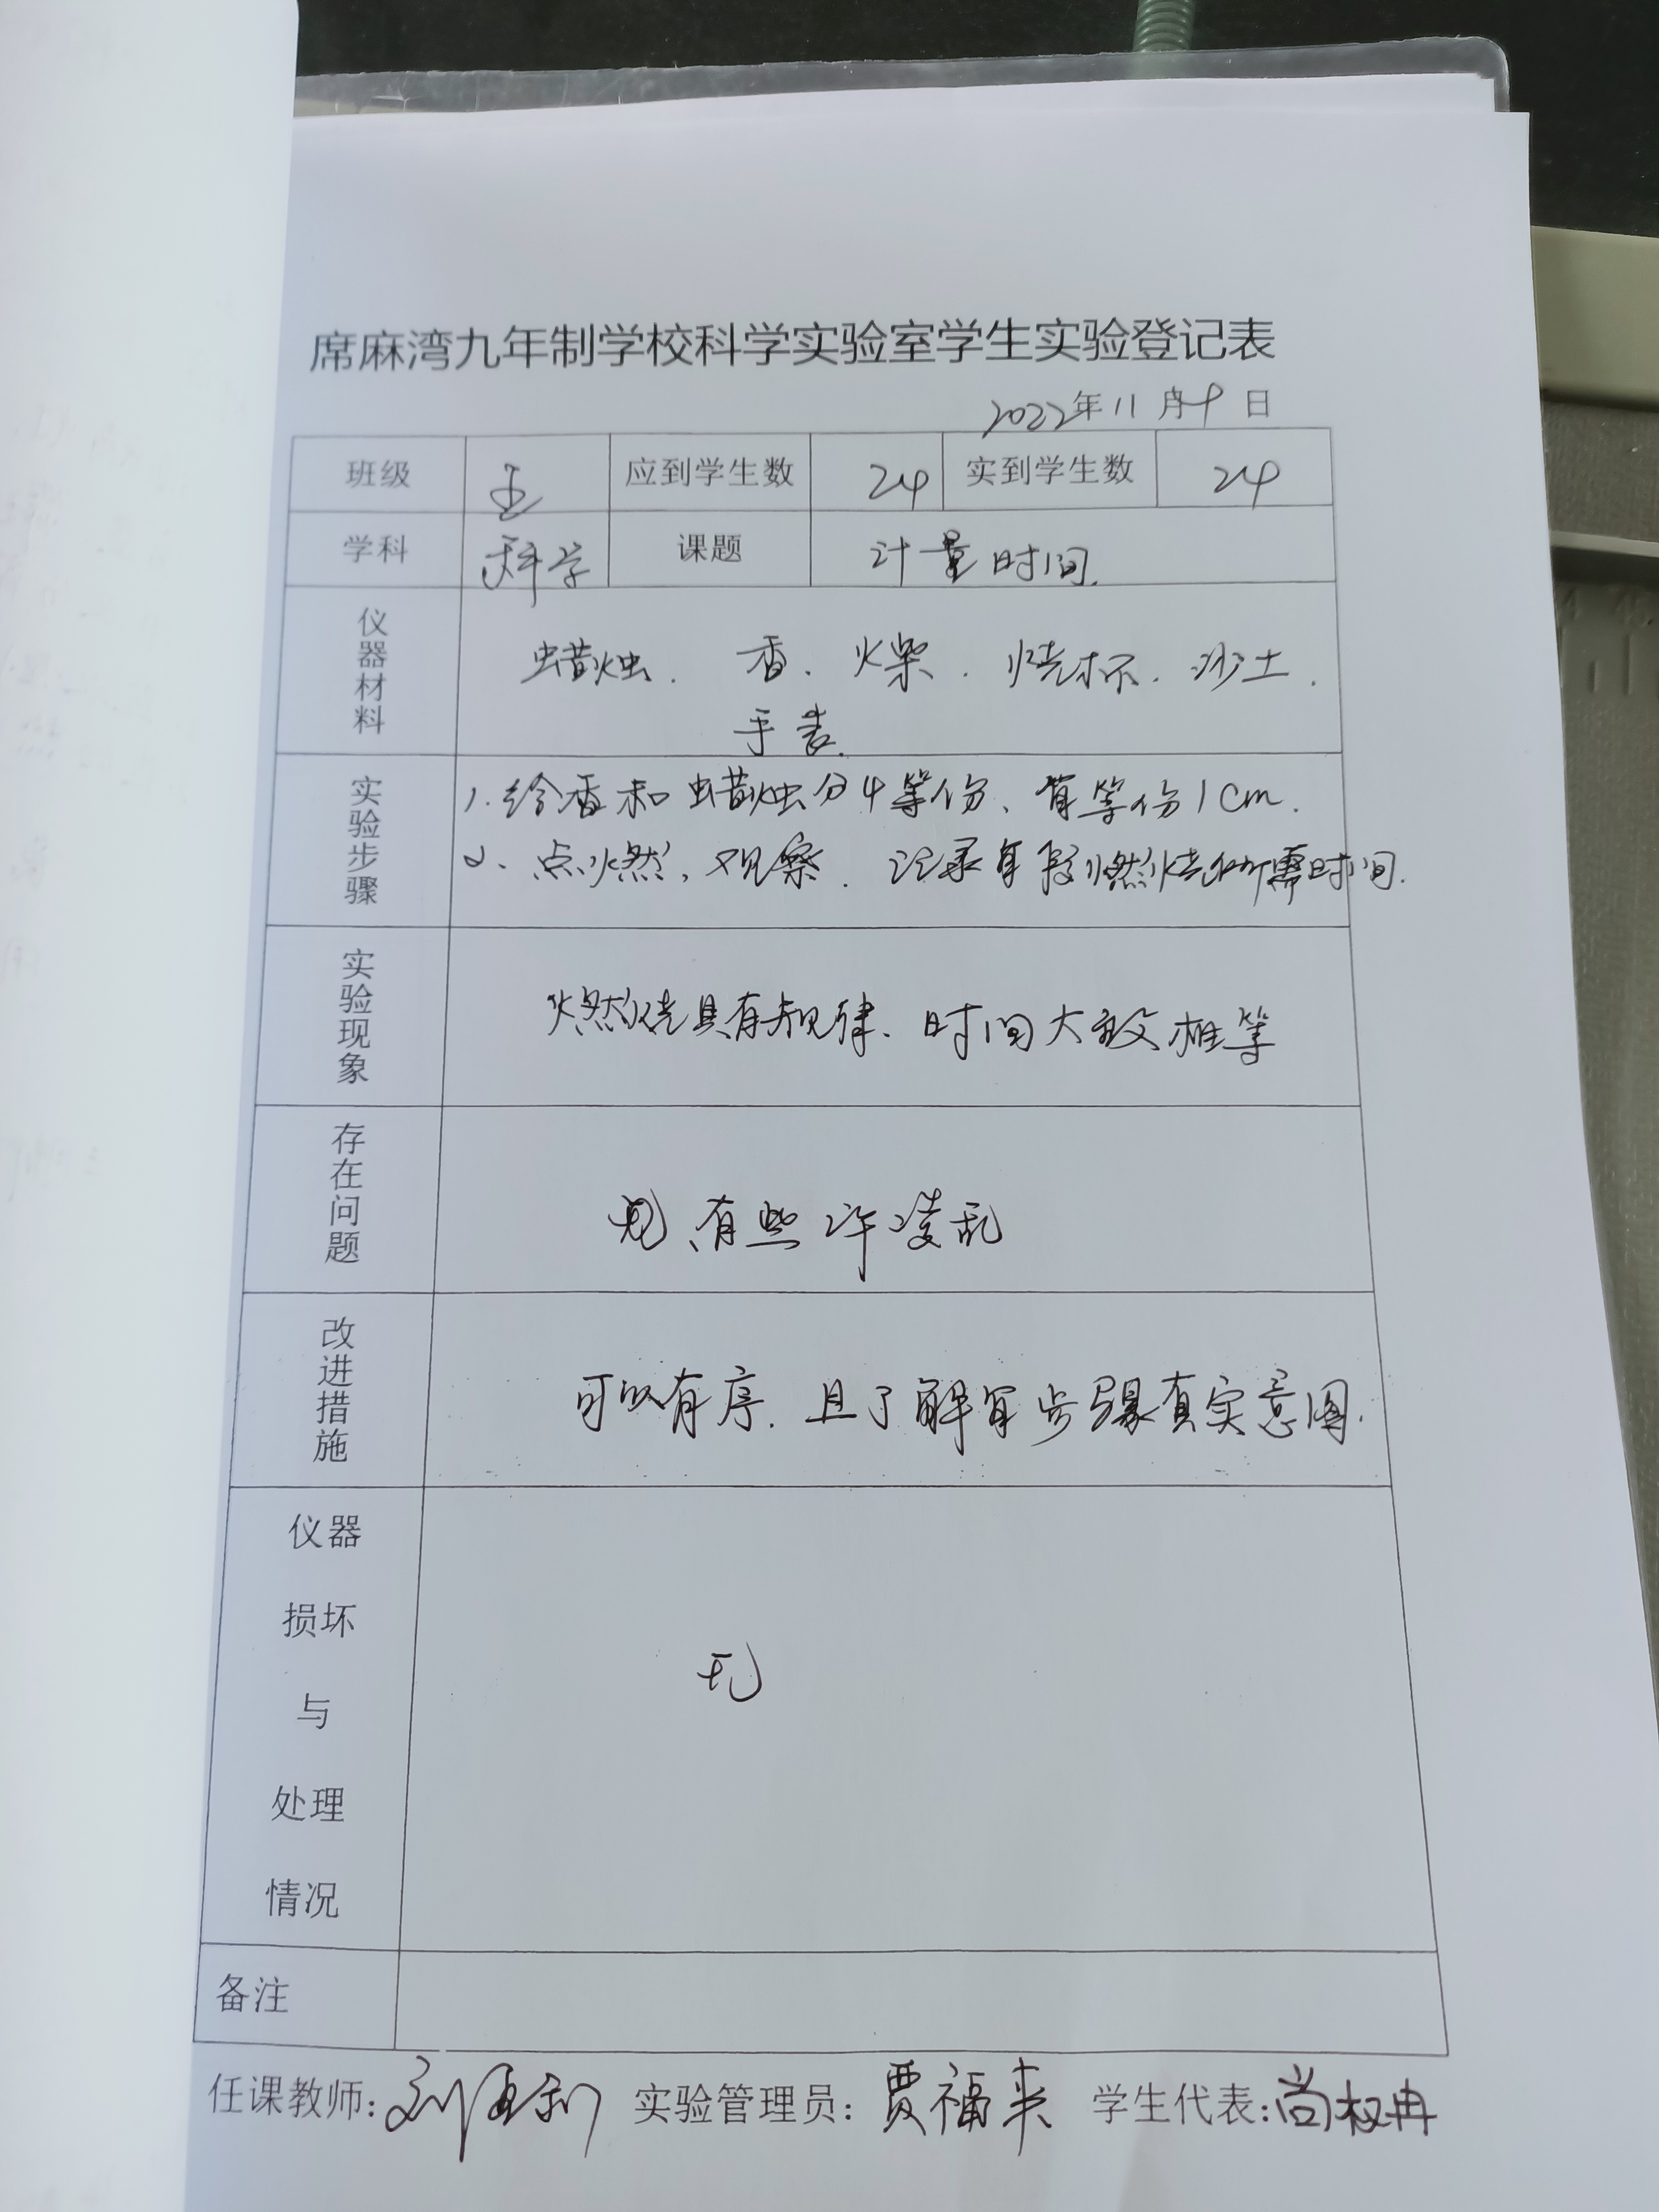 席麻湾九年制学校科学实验室学生实验登记表
2022年11月9日
班级 五 应到学生数 24 实到学生数 24
学科 科学 课题 计量时间.
仪器材料
蜡烛. 香. 火柴. 烧杯. 沙土.
手表.
实验步骤
1. 给香和蜡烛分4等份、每等份1cm.
2、点燃, 观察. 记录每段燃烧所需时间.
实验现象
燃烧具有规律、时间大致相等
存在问题
有些许凌乱
改进措施
可以有序. 且了解每步骤真实意图.
仪器
损坏
与
处理
情况
无
备注
任课教师: 刘 实验管理员: 贾福来 学生代表: 尚权冉